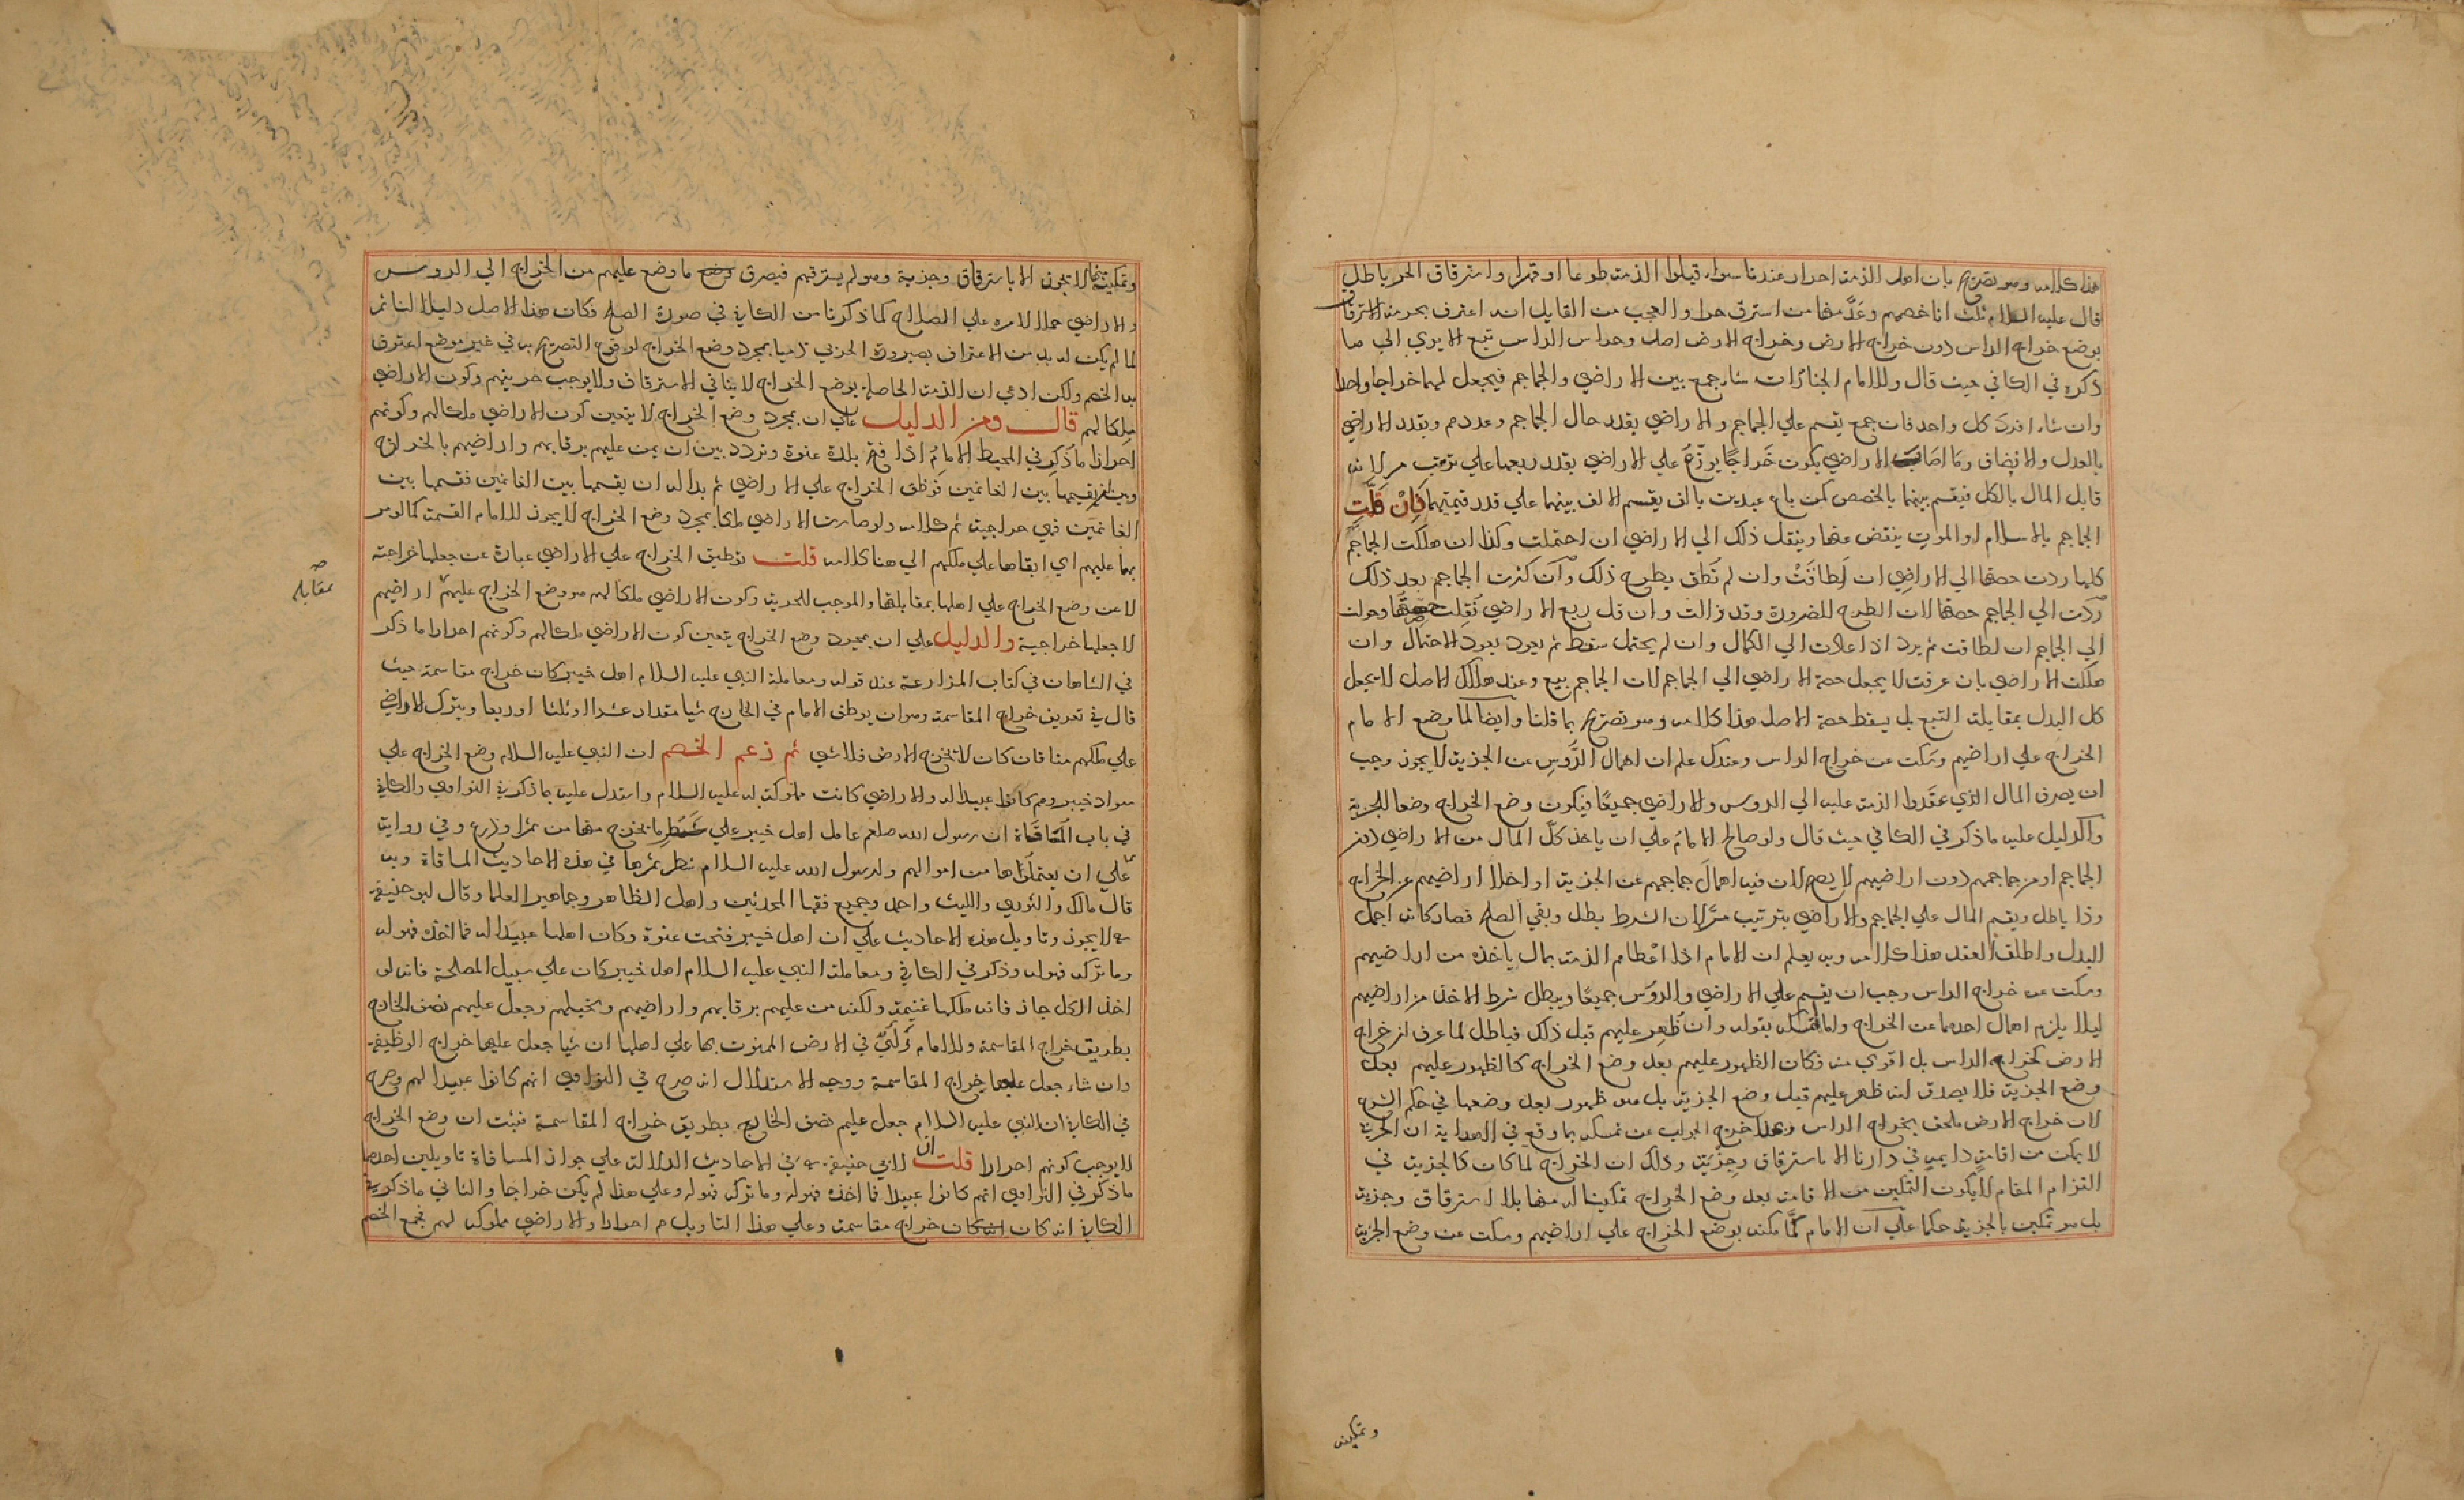 هذا كلامه وهو تصريح بان اهل الذمة احرار عندنا سواء قبلوا الذمة طوعا او قهرا واسترقاق الحر باطل
قال عليه السلام ثلث انا خصمهم وعَدَّ منها من استرق حرا والعجب من القايل انه اعترف بحرمة الاسترقاق
بوضع خراج الراس دون خراج الارض وخراج الارض اصل وخراج الراس تبع الا يري الي ما
ذكره في الكافي حيث قال وللامام الخيار ان شاء جمع بين الاراضي والجماجم فيجعل لهما خراجا واحدا
وان شاء افرد كل واحد فان جمع يقسم علي الجماجم والاراضي بقدر حال الجماجم وعددهم وبقدر الاراضي
بالعدل والانصاف وما اصاب الاراضي يكون خَراجًا يوزّع علي الاراضي بقدر ريعها علي ترتيب مر لانه
قابل المال بالكل فيقسم بينهما بالحصص كمن باع عبدين بالف يقسم الالف بينهما علي قدر قيمتهما فَاِنْ قَلَّتِ
الجماجم بالاسلام او الموت ينتقض عنها وينقل ذلك الي الاراضي ان احتملت وكذا ان هلكت الجماجم
كلها ردت حصتها الي الاراضي ان اَطاقَتْ وان لم تُطق يطرح ذلك وان كثرت الجماجم بعد ذلك
رُدّت الي الجماجم حصتها لان الطرح للضرورة وقد زالت وان قل ريع الاراضي نُقِلت حصتها وحولت
الي الجماجم ان اطاقت ثم يرد اذا عادت الي الكمال وان لم يحتمل سقط ثم يعود بعود الاحتمال وان
هلكت الاراضي بان غرقت لا يجعل حصة الاراضي الي الجماجم لان الجماجم تبع وعند هلاك الاصل لا يجعل
كل البدل بمقابلة التبع بل يسقط حصة الاصل هذا كلامه وهو تصريح بما قلنا وايضا لما وضع الامام
الخراج علي اراضيهم وسكت عن خراج الراس وعندك علم ان اهمال الرُّوس عن الجزية لا يجوز وجب
ان يصرف المال الذي عقدوا الذمة عليه الي الروس والاراضي جميعًا فيكون وضع الخراج وضعا للجزية
والدليل عليه ما ذكر في الكافي حيث قال ولو صالح الامامُ علي ان ياخذ كلّ المال من الاراضي دون
الجماجم او من جماجمهم دون اراضيهم لا يصح لان فيه اهمالَ جماجمهم عن الجزية او اخلاء اراضيهم عن الخراج
وذا باطل ويقسم المال علي الجماجم والاراضي بترتيب مرَّ لان الشرط بطل وبقي الصلح فصار كانه اجمل
البدل واطلق العقد هذا كلامه وبه يعلم ان الامام اذا اعطاهم الذمة بمال ياخذه من اراضيهم
وسكت عن خراج الراس وجب ان يقسم علي الاراضي والروس جميعًا ويبطل شرط الاخذ من اراضيهم
ليلا يلزم اهمال احدهما عن الخراج واما تمسكه بقوله وان ظُهِر عليهم قبل ذلك فباطل لما عرف ان خراج
الارض كخراج الراس بل اقوي منه فكان الظهور عليهم بعد وضع الخراج كالظهور عليهم بعد
وضع الجزية فلا يصدق انه ظهر عليهم قبل وضع الجزية بل هو ظهور بعد وضعها في حكم الشرع
لان خراج الارض ملحق بخراج الراس وهذا خرج الجواب عن تمسكه بما وقع في الهداية ان الحربي
لا يمكن من اقامةٍ دايمةٍ في دارنا الا باسترقاق وجِزْيَة وذلك ان الخراج لما كان كالجزية في
التزام المقام لا يكون التمكين من الاقامة بعد وضع الخراج تمكينا له منها بلا استرقاق وجزية
بل هو تمكين بالجزية حكما علي ان الامام لمّا مكنه بوضع الخراج علي اراضيهم وسكت عن وضع الجزية
وتمكينه
وتمكينه لا يجوز الا باسترقاق وجزية وهو لم يسترقهم فيصرف ما وضع عليهم من الخراج الي الروس
والاراضي حملا لامره علي الصلاح كما ذكرنا من الكافي في صورة الصلح فكان هذا الاصل دليلا لنا ثم
لما لم يكن له بد من الاعتراف بصيرورة الحربي ذميا بمجرد وضع الخراج لوقوع التصريح به في غير موضع اعترف
به الخصم ولكن ادعي ان الذمة الحاصلة بوضع الخراج لا ينافي الاسترقاق ولا يوجب حريتهم وكون الاراضي
ملكا لهم قال ومن الدليل علي ان بمجرد وضع الخراج لا يتعين كون الاراضي ملكا لهم وكونهم
احرارا ما ذُكِر في المحيط الامامُ اذا فتح بلدة عنوة وتردد بين ان يمن عليهم برقابهم واراضيهم بالخراج
وبين ان يقسمها بين الغانمين فوظف الخراج علي الاراضي ثم بدا له ان يقسمها بين الغانمين فقسمها بين
الغانمين فهي خراجية ثم كلامه ولو صارت الاراضي ملكا بمجرد وضع الخراج لا يجوز للامام القسمة كما لو من
بها عليهم اي ابقاها علي ملكهم الي هنا كلامه قلت توظيف الخراج علي الاراضي عبارة عن جعلها خراجية
لا عن وضع الخراج علي اهلها بمقابلتها والموجب للحرية وكون الاراضي ملكا لهم هو وضع الخراج عليهم اراضيهم
بمقابلة صح
لا جعلها خراجية والدليل علي ان بمجرد وضع الخراج يتعين كون الاراضي ملكا لهم وكونهم احرارا ما ذكر
في الشاهان في كتاب المزارعة عند قوله ومعاملة النبي عليه السلام اهل خيبر كان خراج مقاسمة حيث
قال في تعريف خراج المقاسمة وهو ان يوظف الامام في الخارج شيا مقدارا عشرا او ثلثا او ربعا ويترك الاراضي
علي ملكهم منا فان كان لا تخرج الارض فلا شي ثم زعم الخصم ان النبي عليه السلام وضع الخراج علي
سواد خيبر وهم كانوا عبيدا له والاراضي كانت مملوكة له عليه السلام واستدل عليه بما ذكر في النواوي والكافي
في باب المساقاة ان رسول الله صلعم عامل اهل خيبر علي شَطر ما يخرج منها من ثمر او زرع وفي رواية
علي ان يعتملوها من اموالهم ولرسول الله عليه السلام شطر ثمرها في هذه الاحاديث المساقاة وبه
قال مالك والثوري والليث واحمد وجميع فقها المحدثين واهل الظاهر وجماهير العلما وقال ابو حنيفة
لا يجوز وتاويل هذه الاحاديث علي ان اهل خيبر فتحت عنوة وكان اهلها عبيدا له فما اخذه فهو له
وما تركه فهو له وذكر في الكافي ومعاملة النبي عليه السلام اهل خيبر كان علي سبيل المصلحة فانه لو
اخذ الكل جاز فانه ملكها غنيمة ولكنه من عليهم برقابهم واراضيهم ونخيلهم وجعل عليهم نصف الخارج
بطريق خراج المقاسمة وللامام رأيٌ في الارض الممنون بها علي اهلها ان شا جعل عليها خراج الوظيفة
وان شاء جعل عليها خراج المقاسمة ووجه الاستدلال انه صرح في النواوي انهم كانوا عبيدا لهم وصرح
في الكافي ان النبي عليه السلام جعل عليهم نصف الخارج بطريق خراج المقاسمة فثبت ان وضع الخراج
لا يوجب كونهم احرارا قلت ان لابي حنيفة في الاحاديث الدالة علي جواز المساقاة تاويلين احدهما
ما ذكر في النواوي انهم كانوا عبيدا فما اخذه فهو له وما تركه فهو له وعلي هذا لم يكن خراجا والثاني ما ذكر في
الكافي انه كان خراج مقاسمة وعلي هذا التاويل هم احرار والاراضي مملوكة لهم فجمع الخصم